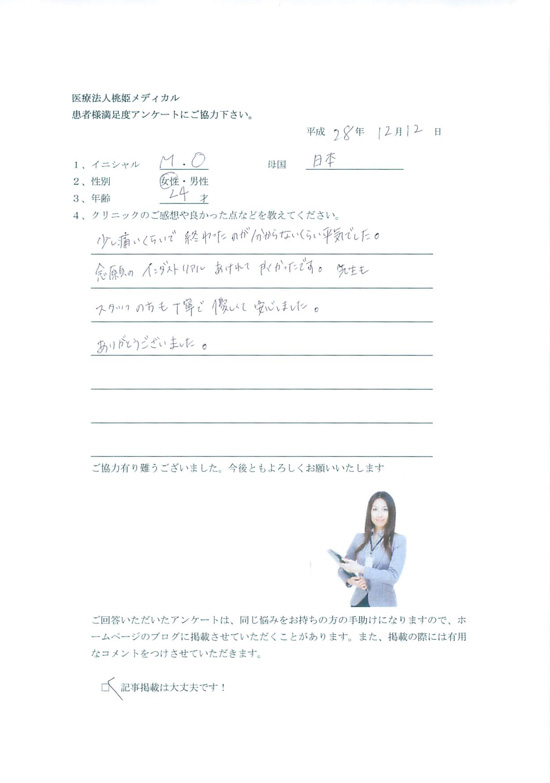 医療法人桃姫メディカル
患者様満足度アンケートにご協力下さい。
平成 28年 12月12日
1、イニシャル M.O 母国 日本
2、性別 女性・男性
3、年齢 24才
4、クリニックのご感想や良かった点などを教えてください。
少し痛いくらいで 終わったのが分からないくらい平気でした。
念願の インダストリアル あけれて よかったです。 先生も
スタッフの方も丁寧で 優しくて 安心しました。
ありがとうございました。
ご協力有り難うございました。今後ともよろしくお願いいたします
ご回答いただいたアンケートは、同じ悩みをお持ちの方の手助けになりますので、ホ
ームページのブログに掲載させていただくことがあります。また、掲載の際には有用
なコメントをつけさせていただきます。
□ 記事掲載は大丈夫です！